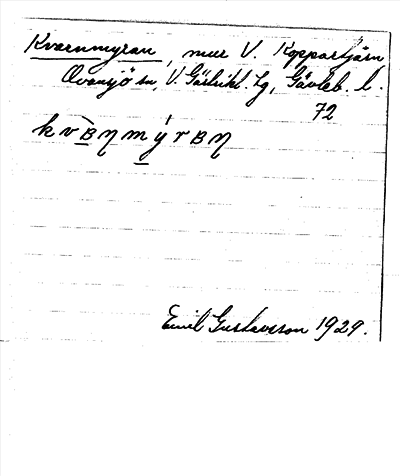 Kvarnmyran, mur V. Koppartjärn
Ovansjö sn, V. Gästrikl. tg, Gävleb. l.
72
kv̀ʙ̲ηm̲ýrʙη
Emil Gustavsson 1929.